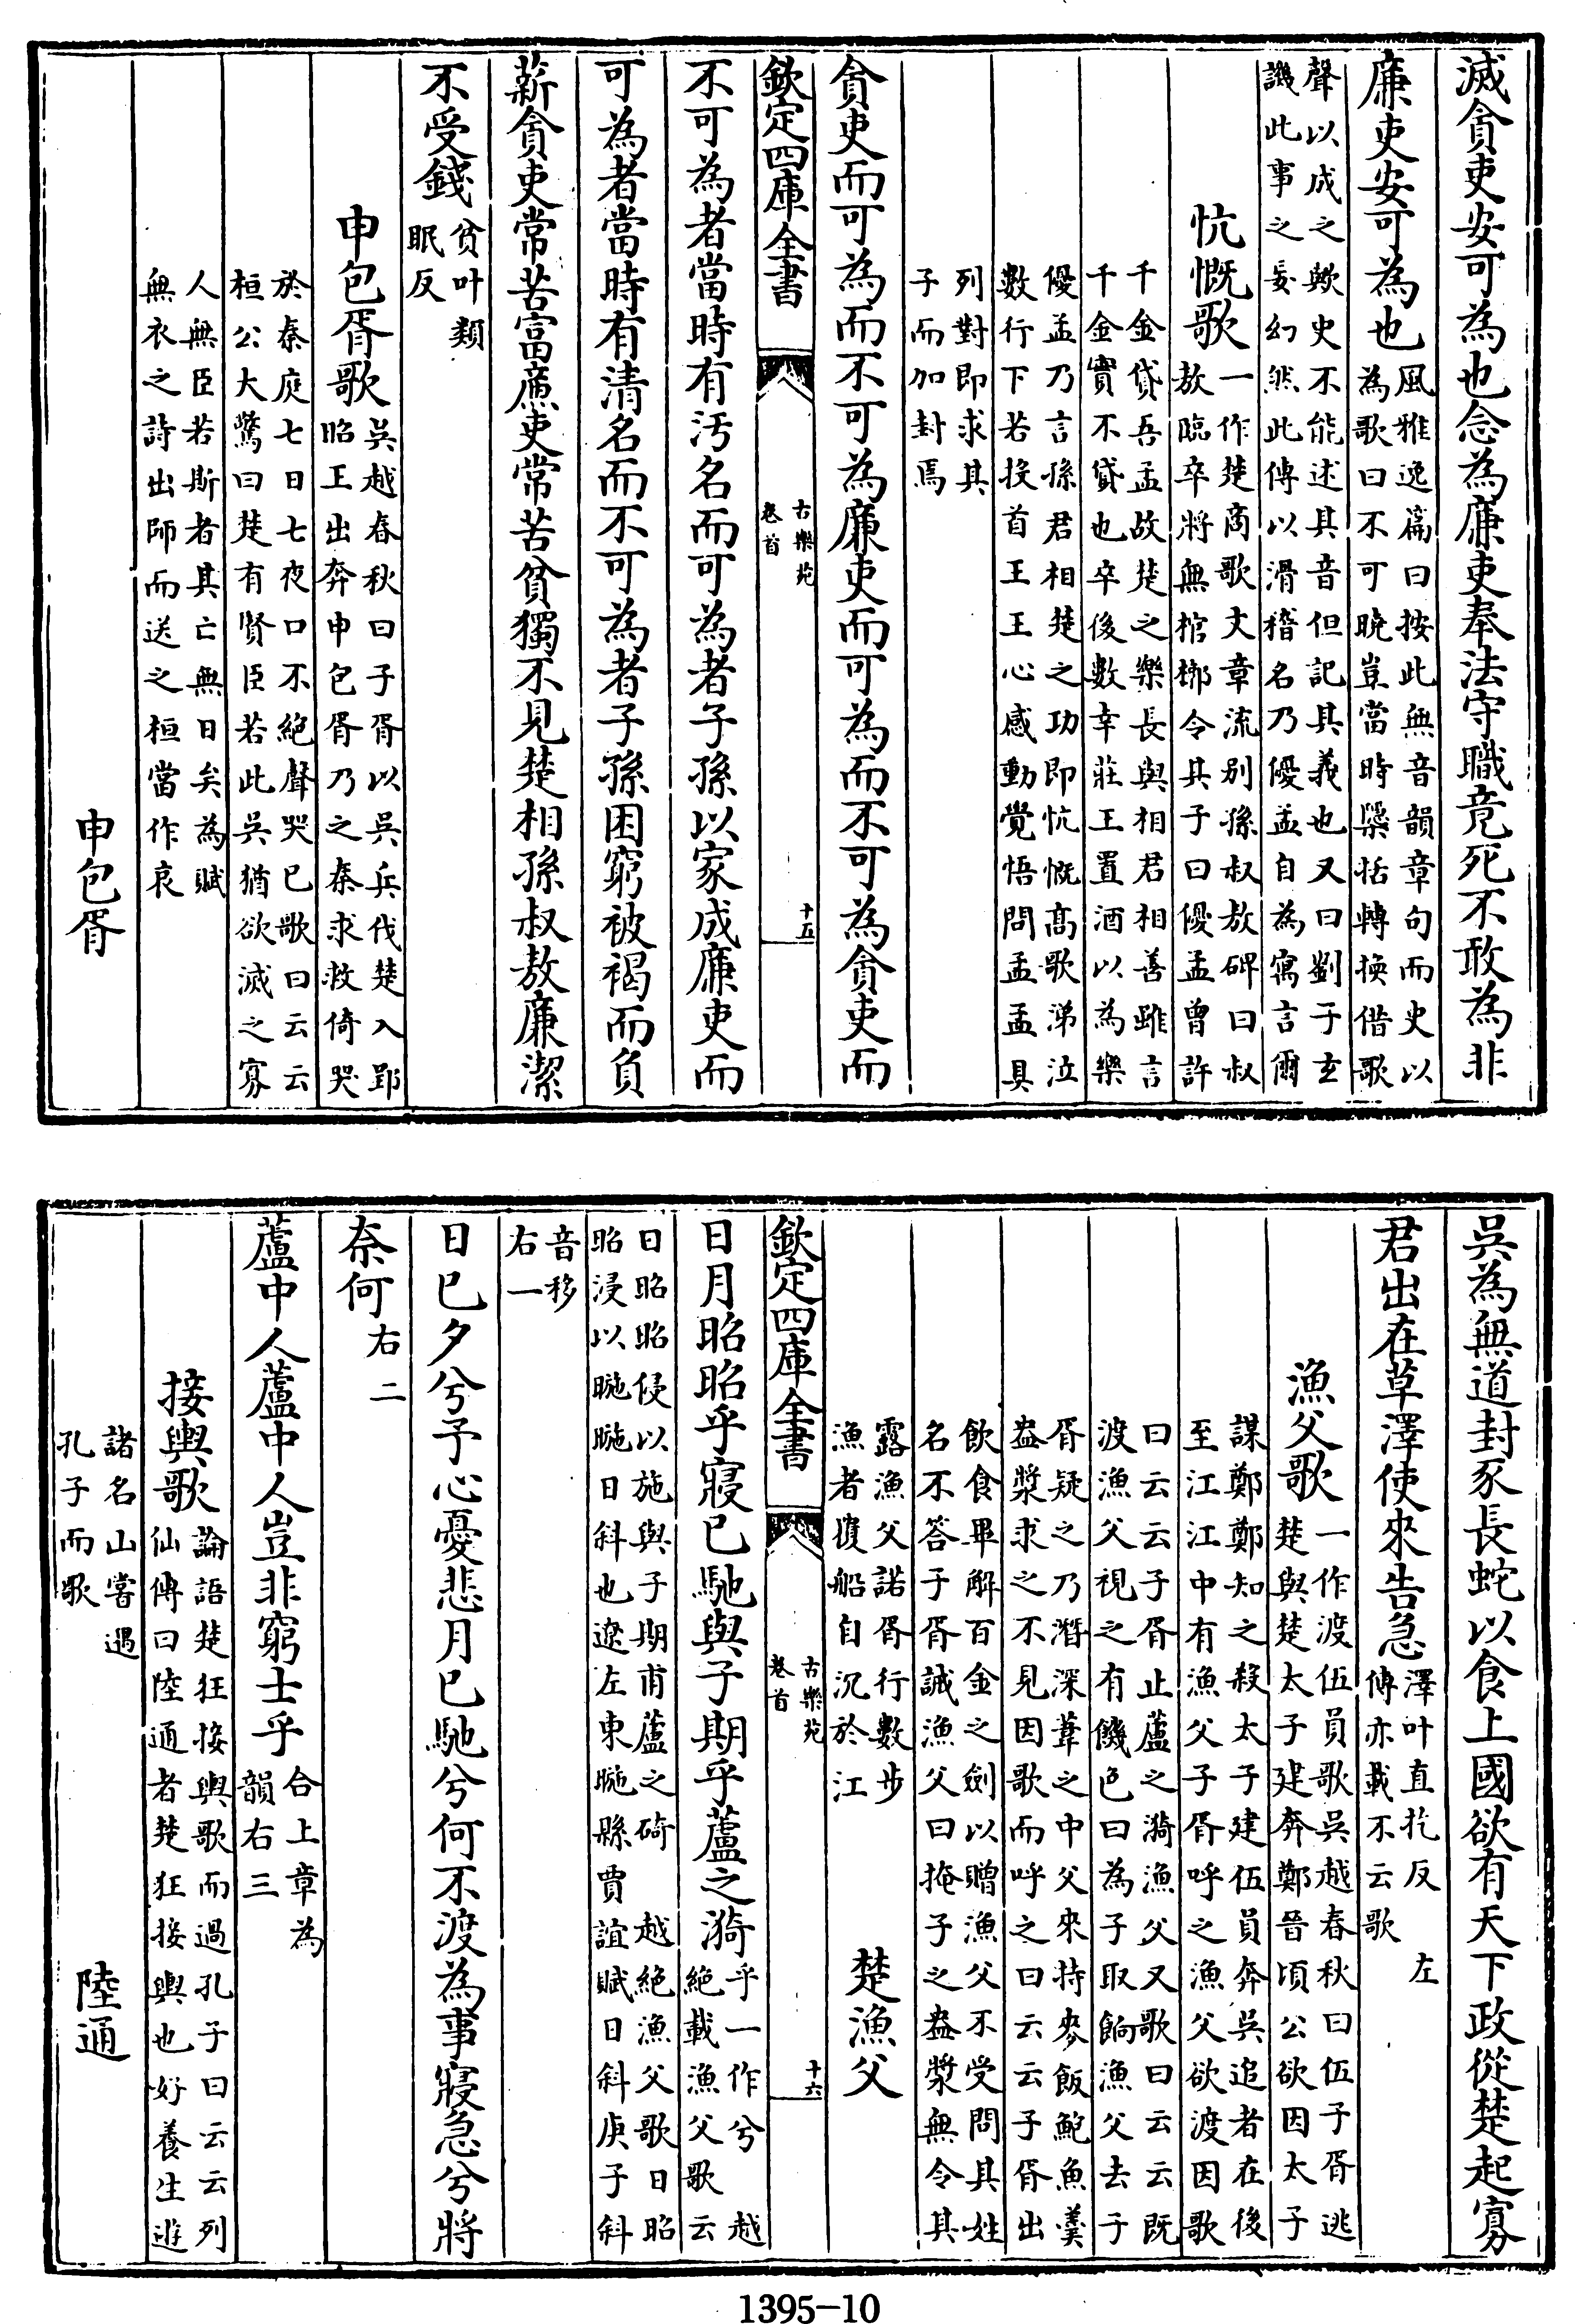 滅貪吏安可為也念為廉吏奉法守職竟死不敢為非
廉吏安可為也風雅逸篇曰按此無音韻章句而史以
為歌曰不可曉豈當時櫽括轉換借歌
聲以成之歟史不能述其音但記其義也又曰劉子玄
譏此事之妄幻然此傳以滑稽名乃優孟自為寓言爾
忼慨歌一作楚商歌文章流别孫叔敖碑曰叔
敖臨卒將無棺槨令其子曰優孟曾許
千金貸吾孟故楚之樂長與相君相善雖言
千金實不貸也卒後數幸莊王置酒以為樂
優孟乃言孫君相楚之功即忼慨髙歌涕泣
數行下若投首王王心感動覺悟問孟孟具
列對即求其
子而加封焉
貪吏而可為而不可為廉吏而可為而不可為貪吏而
欽定四庫全書
古樂苑
卷首
十五
不可為者當時有汚名而可為者子孫以家成廉吏而
可為者當時有清名而不可為者子孫困窮被褐而負
薪貪吏常苦富廉吏常苦貧獨不見楚相孫叔敖廉潔
不受錢貧叶類
眠反
申包胥歌吳越春秋曰子胥以吳兵伐楚入郢
昭王出奔申包胥乃之秦求救倚哭
於秦庭七日七夜口不絶聲哭已歌曰云云
桓公大驚曰楚有賢臣若此吳猶欲滅之寡
人無臣若斯者其亡無日矣為賦
無衣之詩出師而送之桓當作哀
申包胥
吳為無道封豕長蛇以食上國欲有天下政從楚起寡
君出在草澤使來告急澤叶直扢反左
傳亦載不云歌
漁父歌一作渡伍員歌吳越春秋曰伍子胥逃
楚與楚太子建奔鄭晉頃公欲因太子
謀鄭鄭知之殺太子建伍員奔吳追者在後
至江江中有漁父子胥呼之漁父欲渡因歌
曰云云子胥止蘆之漪漁父又歌曰云云既
渡漁父視之有饑色曰為子取餉漁父去子
胥疑之乃潛深葦之中父來持麥飯鮑魚羮
盎漿求之不見因歌而呼之曰云云子胥出
飲食畢解百金之劍以贈漁父不受問其姓
名不答子胥誡漁父曰掩子之盎漿無令其
露漁父諾胥行數步
漁者覆船自沉於江
楚漁父
欽定四庫全書
古樂苑
卷首
十六
日月昭昭乎寢已馳與子期乎蘆之漪乎一作兮越
絶載漁父歌云
日昭昭侵以施與子期甫蘆之碕越絶漁父歌日昭
昭浸以暆暆日斜也遼左東暆縣賈誼賦日斜庚子斜
音移
右一
日已夕兮予心憂悲月已馳兮何不渡為事寢急兮將
奈何右二
蘆中人蘆中人豈非窮士乎合上章為
韻右三
接輿歌論語楚狂接輿歌而過孔子曰云云列
仙傳曰陸通者楚狂接輿也好養生遊
諸名山嘗遇
孔子而歌
陸通
1395-10